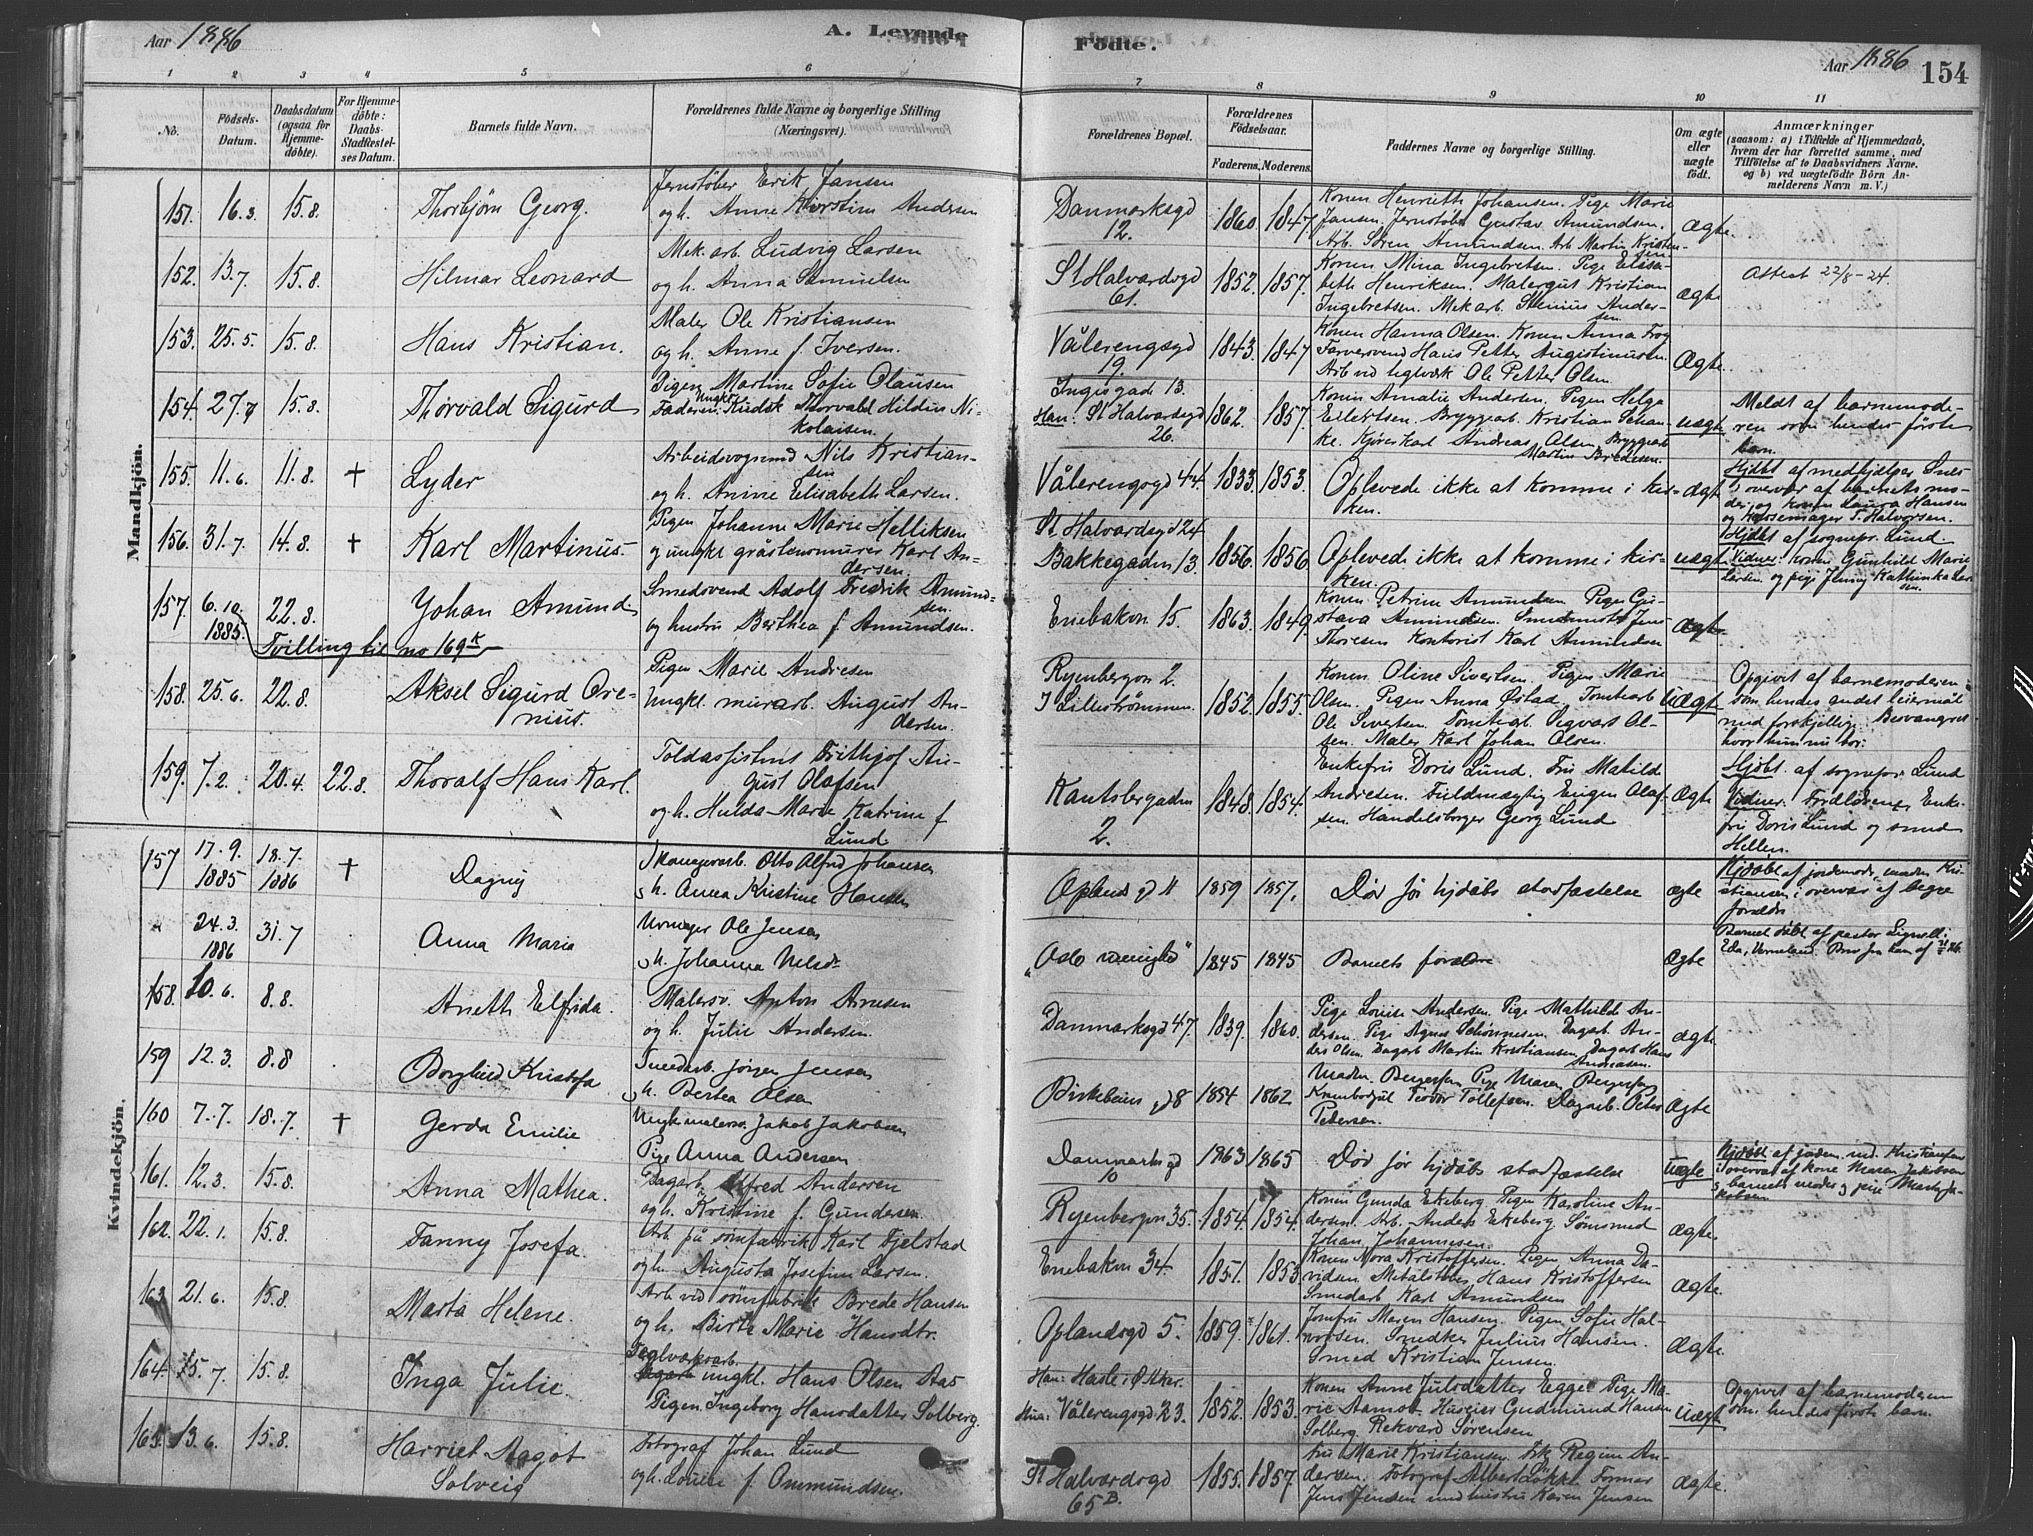 Aar 1886
A. Levende Fødte.
Aar 1886 154
1 2 3 4 5 6 7 8 9 10 11
No.
Födsels-Datum.
Daabsdatum (ogsaa for Hjemme-döbte).
For Hjemme-döbte: Daabs-Stadfestel-ses Datum.
Barnets fulde Navn.
Forældrenes fulde Navne og borgerlige Stilling
(Næringsvei).
Forældrenes Bopæl.
Forældrenes Födselsaar.
Faderens. Moderens.
Faddernes Navne og borgerlige Stilling.
Om ægte eller uægte födt.
Anmærkninger
(saasom: a) i Tilfælde af Hjemmedaab,
hvem der har forrettet samme, med
Tilföielse af to Daabsvidners Navne.
og b) ved uægtefödte Börn An-
melderens Navn m. V.)
Mandkjön.
151. 16.3. 15.8. Thorbjörn Georg.
Jernstöber Erik Jansen
og h. Anne Kirstine Andersen
Danmarksgd 12. 1860. 1847.
Konen Henriette Johansen. Pige Marie
Jansen. Jernstöber Gustav Amundsen.
Arb. Sören Amundsen. Arb Martin Kristen-
sen
Ægte.
152. 13.7. 15.8. Hilmar Leonard
Mek. arb. Ludvig Larsen
og h. Anna Samuelsen
St Halvardsgd 61. 1852. 1857.
Konen Mina Ingebretsen. Pige Elisa-
beth Henriksen. Malergut Kristian
Ingebretsen. Mek arb. Stenius Ander-
sen.
Ægte
Attest 22/8-24.
153. 25.5. 15.8. Hans Kristian.
Maler Ole Kristiansen
og h. Anne f. Iversen.
Vålerengsgd 19. 1843. 1847
Konen Hanna Olsen. Konen Anna Frog
Farversvend Hans Petter Augistinusen.
Arb ved teglværk Ole Petter Olsen
Ægte.
154. 27.7 15.8. Thorvald Sigurd
Pigen Martine Sofie Olausen
Faderen: Ungk. Kudsk Thorvald Hildus Ni-
kolaisen.
Ingisgade 13.
Han: St Halvardsgd 26. 1862. 1857.
Konen Amalie Andersen. Pigen Helga
Eilertsen. Bryggearb. Kristian Schan-
ke. Kjörerkarl Andreas Olsen Bryggearb
Martin Bredesen.
uægte
Meldt af barnemode-
ren som hendes förste
barn.
155. 11.6. 11.8. † Lyder
Arbeidsvognmd Nils Kristian-
sen
og h. Anine Elisabeth Larsen.
Vålerengsgd 44. 1833. 1853.
Oplevede ikke at komme i kir-
ken.
ægte
Hjdöbt af medhjelper Snes
i overvær af barnets mo-
der, og konen Laura Hansen
og Korsemager T. Halvorsen.
156. 31.7. 14.8. † Karl Martinus
Pigen Johanne Marie Helliksen
og ungkl gråstensmurer Karl An-
dersen.
St Halvardsgd 24
Bakkegaden 13. 1856. 1856
Oplevede ikke at komme i kir-
ken.
uægte
Hjdöbt af sognepr. Lund
Vidner: konen Gunhild Marie
Larsen og pige Jenny Kathinka Lar-
sen.
157. 6.10. 1885. 22.8. Johan Amund
Tvilling til no 169 x
Smedsvend Adolf Fredrik Amund-
sen.
og hustru Berthea f. Amundsen.
Enebakvn 15. 1863. 1849.
Konen Petrine Amundsen Pige Gu-
stava Amundsen.
Thoresen Kontorist Karl Amundsen
Ægte.
158. 25.6. 22.8. Aksel Sigurd Are-
nius.
Pigen Marie Andresen
Ungkl. murarb. August An-
dersen.
Ryenbergvn 2.
I Lillestrømmen. 1852. 1855.
Konen Oline Sivertsen. Pigen Marie
Olsen. Pigen Anna Østad. Tomtearb
Ole Sivertsen. Tomtearb. Sigvart Ol-
sen. Maler Karl Johan Olsen.
Uægte
Opgivet af barnemoderen
som hendes andet leiermål
med forskjellige Besvangrere
hvor hun nu bor.
159. 7.2. 20.4. 22.8. Thoralf Hans Karl.
Toldassistent Frithjof Au-
gust Olafsen
og h. Hulda Marie Katrine f
Lund
Kantsbergaden 2. 1848. 1854.
Enkefru Doris Lund. Fru Matild
Andresen. Fuldmægtig Eugen Olaf-
sen. Handelsborger Georg Lund
Ægte
Hjdöbt. af sognepr. Lund
Vidner: Enke-
fru Doris Lund og smed
Hellen.
Kvindekjön.
157 17.9. 1885 18.7. 1886 † Dagny
Otto Alfred Johansen
og h. Anna Kristine Hansen
Oplandsgd 11 1859 1857.
Död för hjdöbs stadfæstelse
ægte
Hjdöbt af jordemoder madm Kri-
stiansen i overvær af begge
forældre
24.3. 1886 31.7 Anna Maria
Urmager Ole Jensen
og h. Johanna Nilsdr
"Oslo menighed" 1845 1845
Barnets forældre
Ægte
Barnet döbt af pastor Lignell i
Eda, Vermeland.
158. 10.6. 8.8. Aneth Elfrida.
Malersv. Anton Arnesen
og h. Julie Andersen
Danmarksgd 47. 1839. 1860.
Pige Louise Andersen. Pige Mathilde An-
dersen. Pige Agnes Schönnesen. Dagarb. An-
ders Olsen. Dagarb Martin Kristiansen, Dagarb Hans
Andreasen.
ægte.
159 12.3. 8.8 Borghild Kristofa
Smedarb. Jörgen Jensen
og h. Bertea Olsen
Birkebeinsgd 8 1854 1862
Madm. Bergersen Pige Maren Bergersen
Teodor Tollefsen. Dagarb. Peter
Pedersen.
Ægte
160 7.7. 18.7. † Gerda Emilie
Ungk malersv. Jakob Jakobsen
Pige Anna Andersen
Danmarksgd 10 1863 1865
Död för hjdöbs stadfæstelse
Uægte
Hjdöbt af jordem. md. Kristiansen
i overvær af kone Maren Jakobsen
og barnets moder og pige Marta Ja-
kobsen
161. 12.3. 15.8. Anna Mathea.
Dagarb. Alfred Andersen
og h. Kristine f. Gundersen
Ryenbergvn 35. 1854. 1854.
Konen Gunda Ekeberg Pigen Karoline An-
dersen. Arb. Anders Ekeberg Sömsmed
Johan Johannesen.
Ægte.
162. 22.1. 15.8. Fanny Josefa.
Arb. på sömfabrik Karl Fjelstad
og h. Augusta Josefine Larsen.
Enebakvn 34. 1851. 1853
Konen Mora Kristoffersen. Pigen Anna Da-
vidsen. Metalstöber Hans Kristoffersen
Smedarb Karl Amundsen
Ægte.
163 21.6. 15.8. Marta Helene.
Arb. ved sömfabrik Brede Hansen
og h. Birte Marie Hansdtr.
Oplandsgd 5. 1859. 1861.
Jomfru Maren Hansen. Pigen Sofie Hal-
vorsen. Smedker Julius Hansen.
Smed Kristian Jensen.
Ægte.
164. 15.7. 15.8. Inga Julie.
Teglværksarb.
ungkl. Hans Olsen Aas
Pigen Ingeborg Hansdatter Solberg.
Han: Hasle i Ø Aker.
Hun: Vålerengsgd. 23. 1852. 1853.
Konen Anne Julsdatter Egge. Pige Ma-
rie Aamot. Huseier Gudmund Hansen
Solberg. Rekvard Sörensen
Uægte
Opgivet af barnemoderen
som hendes förste barn.
165. 13.6. 15.8. Harriet Aagot
Solveig
Fotograf Johan Lund
og h. Louise f. Ommundsen.
St Halvardsgd 65 B. 1855. 1857.
Fru Marie Kristiansen Frk Regine An-
dersen. Fotograf Albert Lökke Former
Jens Jensen med hustru Karen Jensen
Ægte.